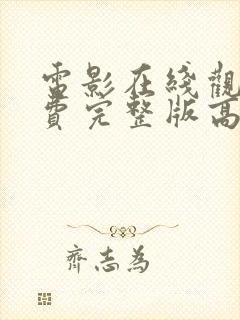 電影在綫觀
費完整版高
齊志為